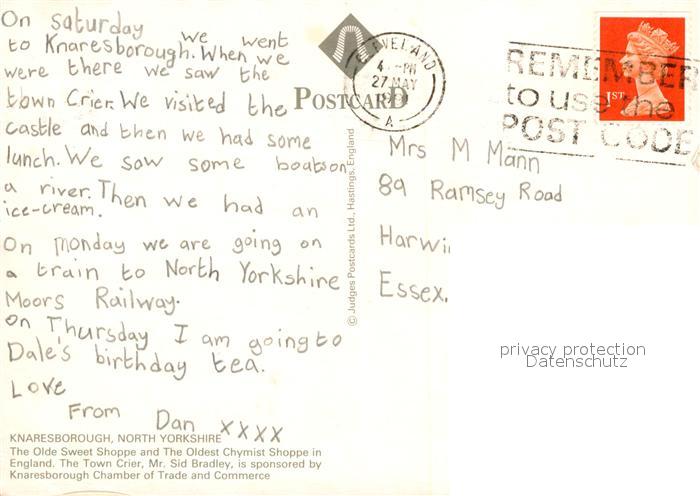 On Saturday we went
to Knaresborough. When we
were there we saw the
town Crier. We visited the
castle and then we had some
lunch. We saw some boats on
a river. Then we had an
ice-cream.
On monday we are going on
a train to North Yorkshire
Moors Railway.
On Thursday I am going to
Dale's birthday tea.
Love
From Dan xxxx
KNARESBOROUGH, NORTH YORKSHIRE
The Olde Sweet Shoppe and The Oldest Chymist Shoppe in
England. The Town Crier, Mr. Sid Bradley, is sponsored by
Knaresborough Chamber of Trade and Commerce
POSTCARD
© Judges Postcards Ltd., Hastings, England
CLEVELAND
4-PM
27 MAY
A
REMEMBER
to use the
POST CODE
1ST
Mrs M Mann
89 Ramsey Road
Harwi
Essex.
privacy protection
Datenschutz